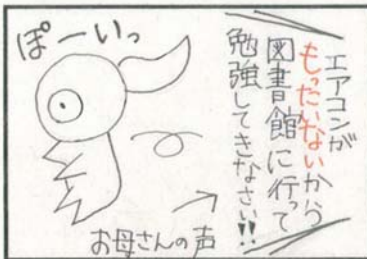 エアコンが
もったいないから
図書館に行って
勉強してきなさい!!
ぽーいっ
お母さんの声